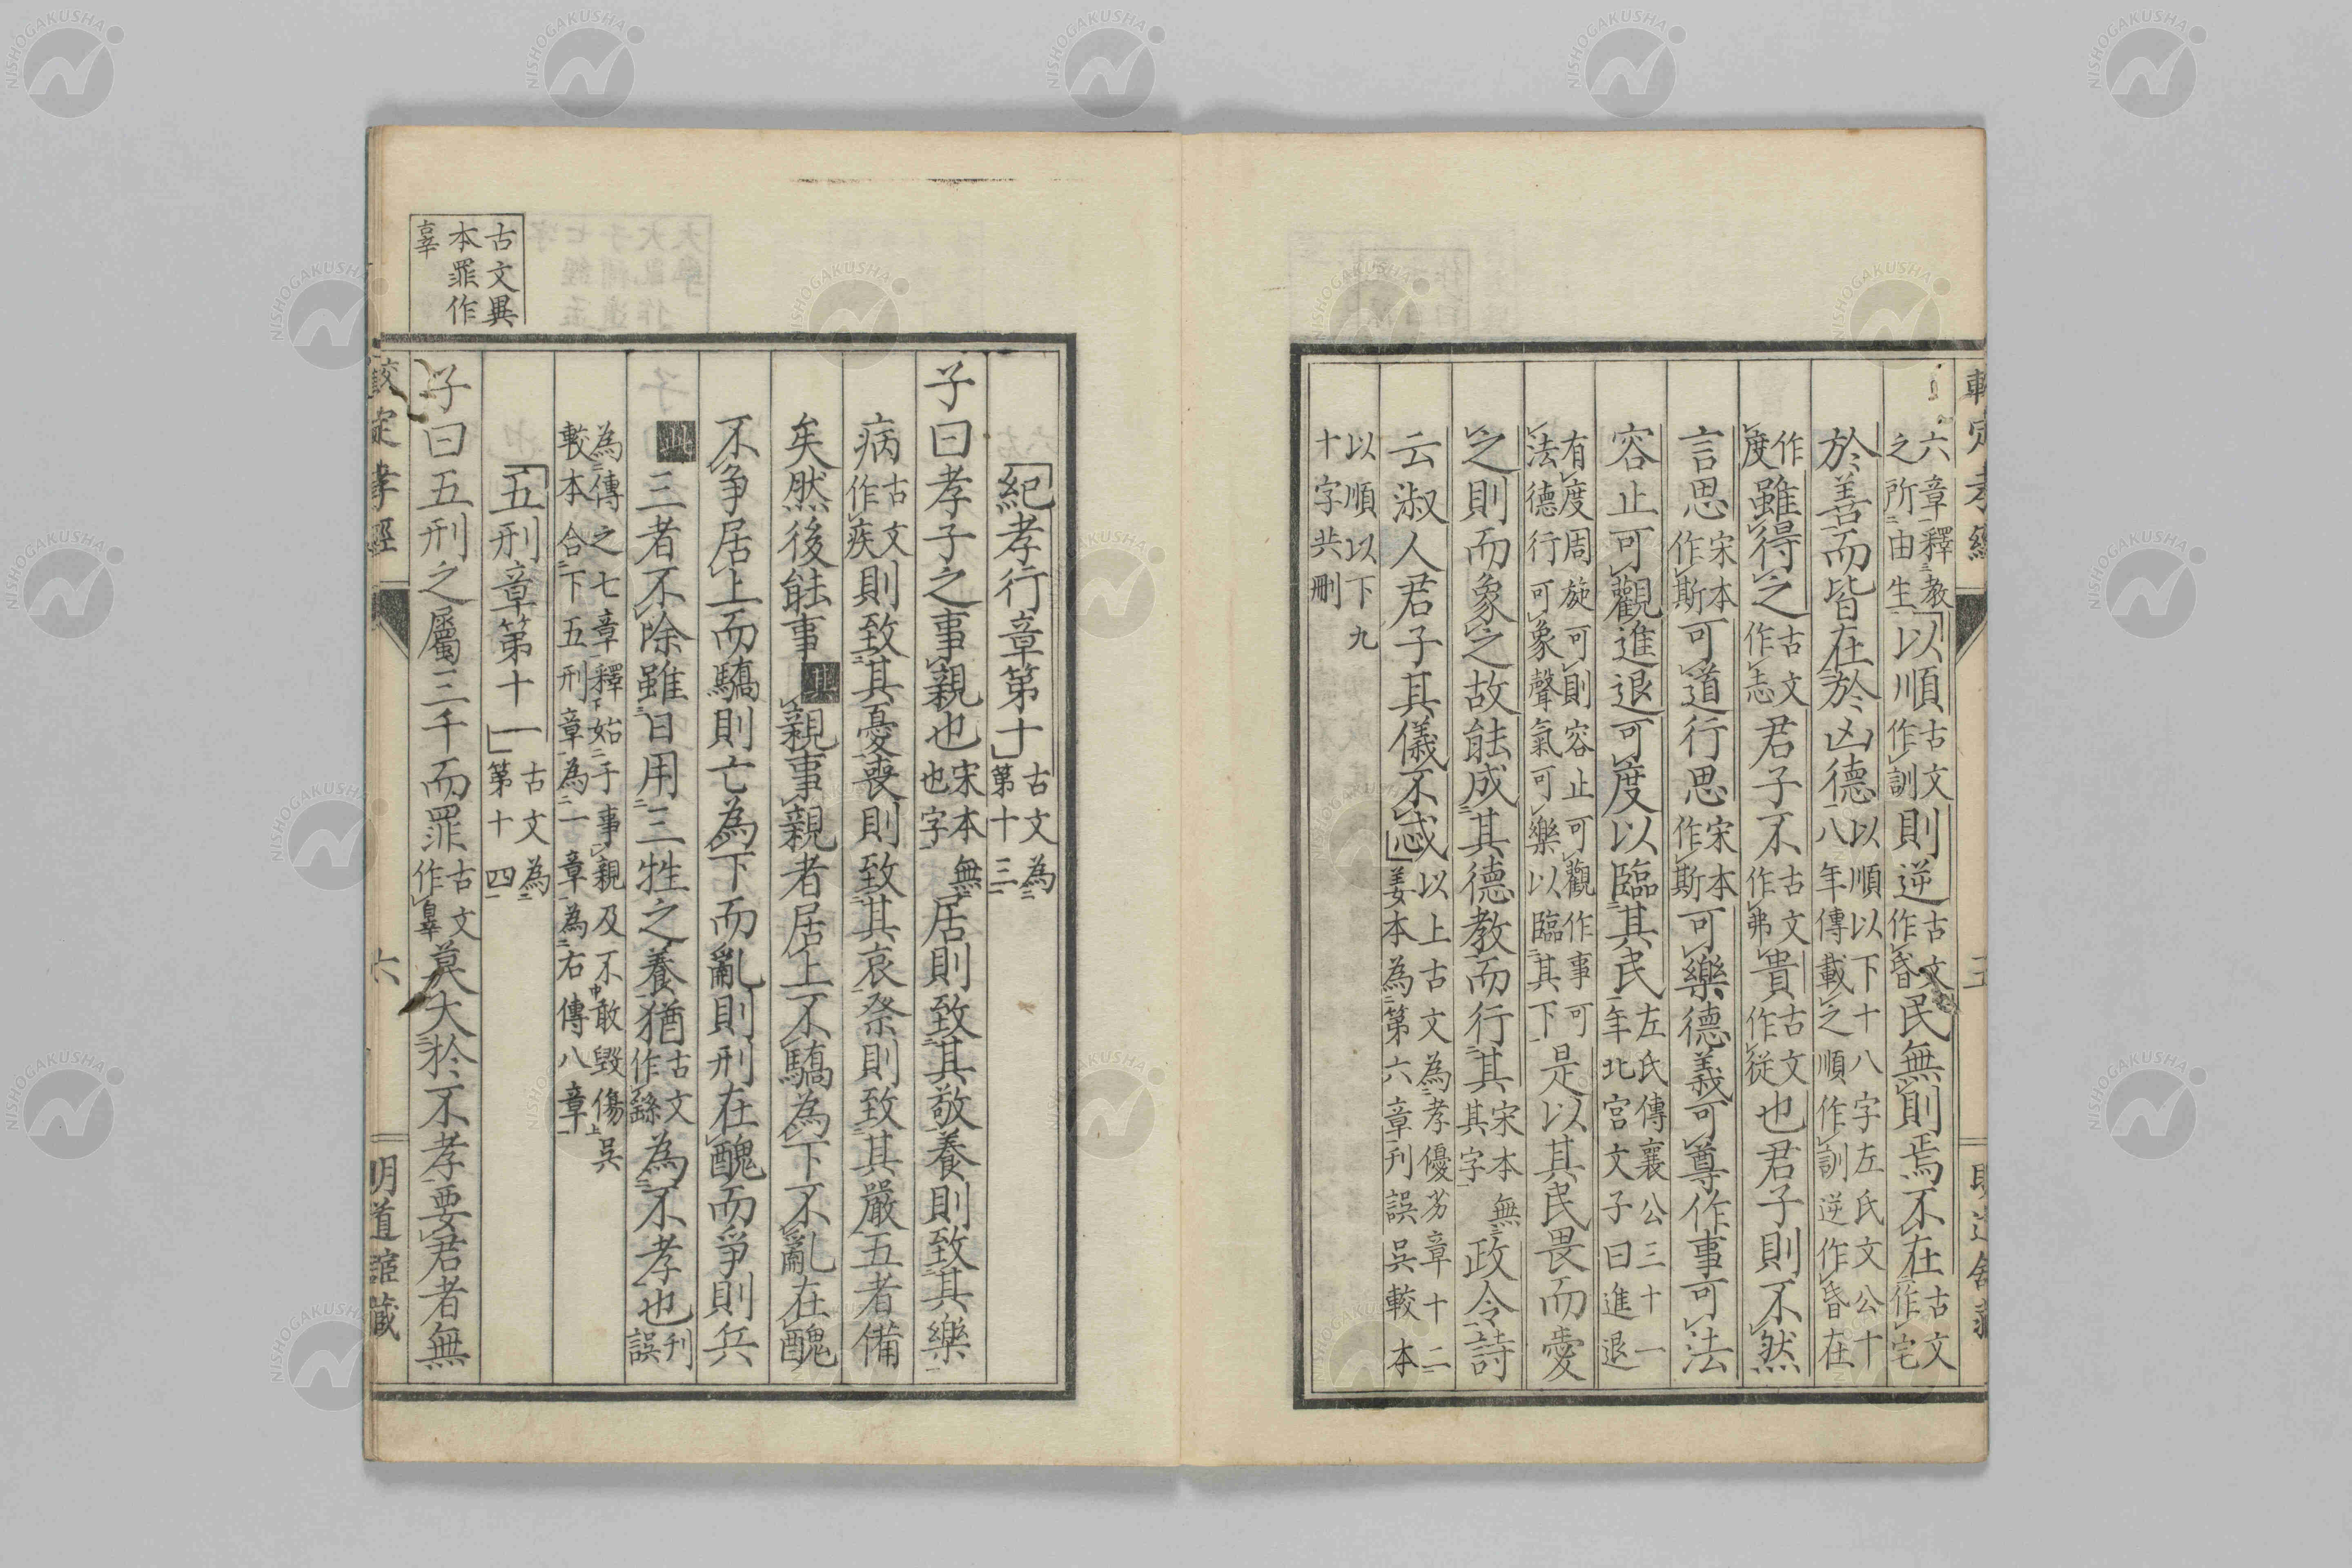 六章釋教
之所由生以順古文作訓則逆古文作昏民無則焉不在古文作宅
於善而皆在於凶德以順以下十八字左氏文公十
八年傳載之順作訓逆作昏在
作度雖得之古文作志君子不古文作弗貴古文作従也君子則不然
言思宋本作斯可道行思宋本作斯可樂德義可尊作事可法
容止可觀進退可度以臨其民左氏傳襄公三十一
年北宮文子曰進退
有度周旋可則容止可觀作事可
法德行可象聲氣可樂以臨其下是以其民畏而愛
之則而象之故能成其德教而行其宋本無其字政令詩
云淑人君子其儀不忒以上古文為孝優劣章十二
姜本為第六章刊誤吳較本
以順以下九
十字共刪
較定孝經
五
紀孝行章第十古文為第十三
子曰孝子之事親也宋本無也字居則致其敬養則致其樂
病古文作疾則致其憂喪則致其哀祭則致其嚴五者備
矣然後能事其親事親者居上不驕為下不亂在醜
不爭居上而驕則亡為下而亂則刑在醜而爭則兵
此三者不除雖日用三牲之養猶古文作繇為不孝也刊誤
為傳之七章釋始于事親及不敢毀傷吳
較本合下五刑章為一章為右傳八章
五刑章第十一古文為第十四
子曰五刑之屬三千而罪古文作辠莫大於不孝要君者無
古文異
本罪作
辜
較定孝經
六
明道館藏
NISHOGAKUSHA